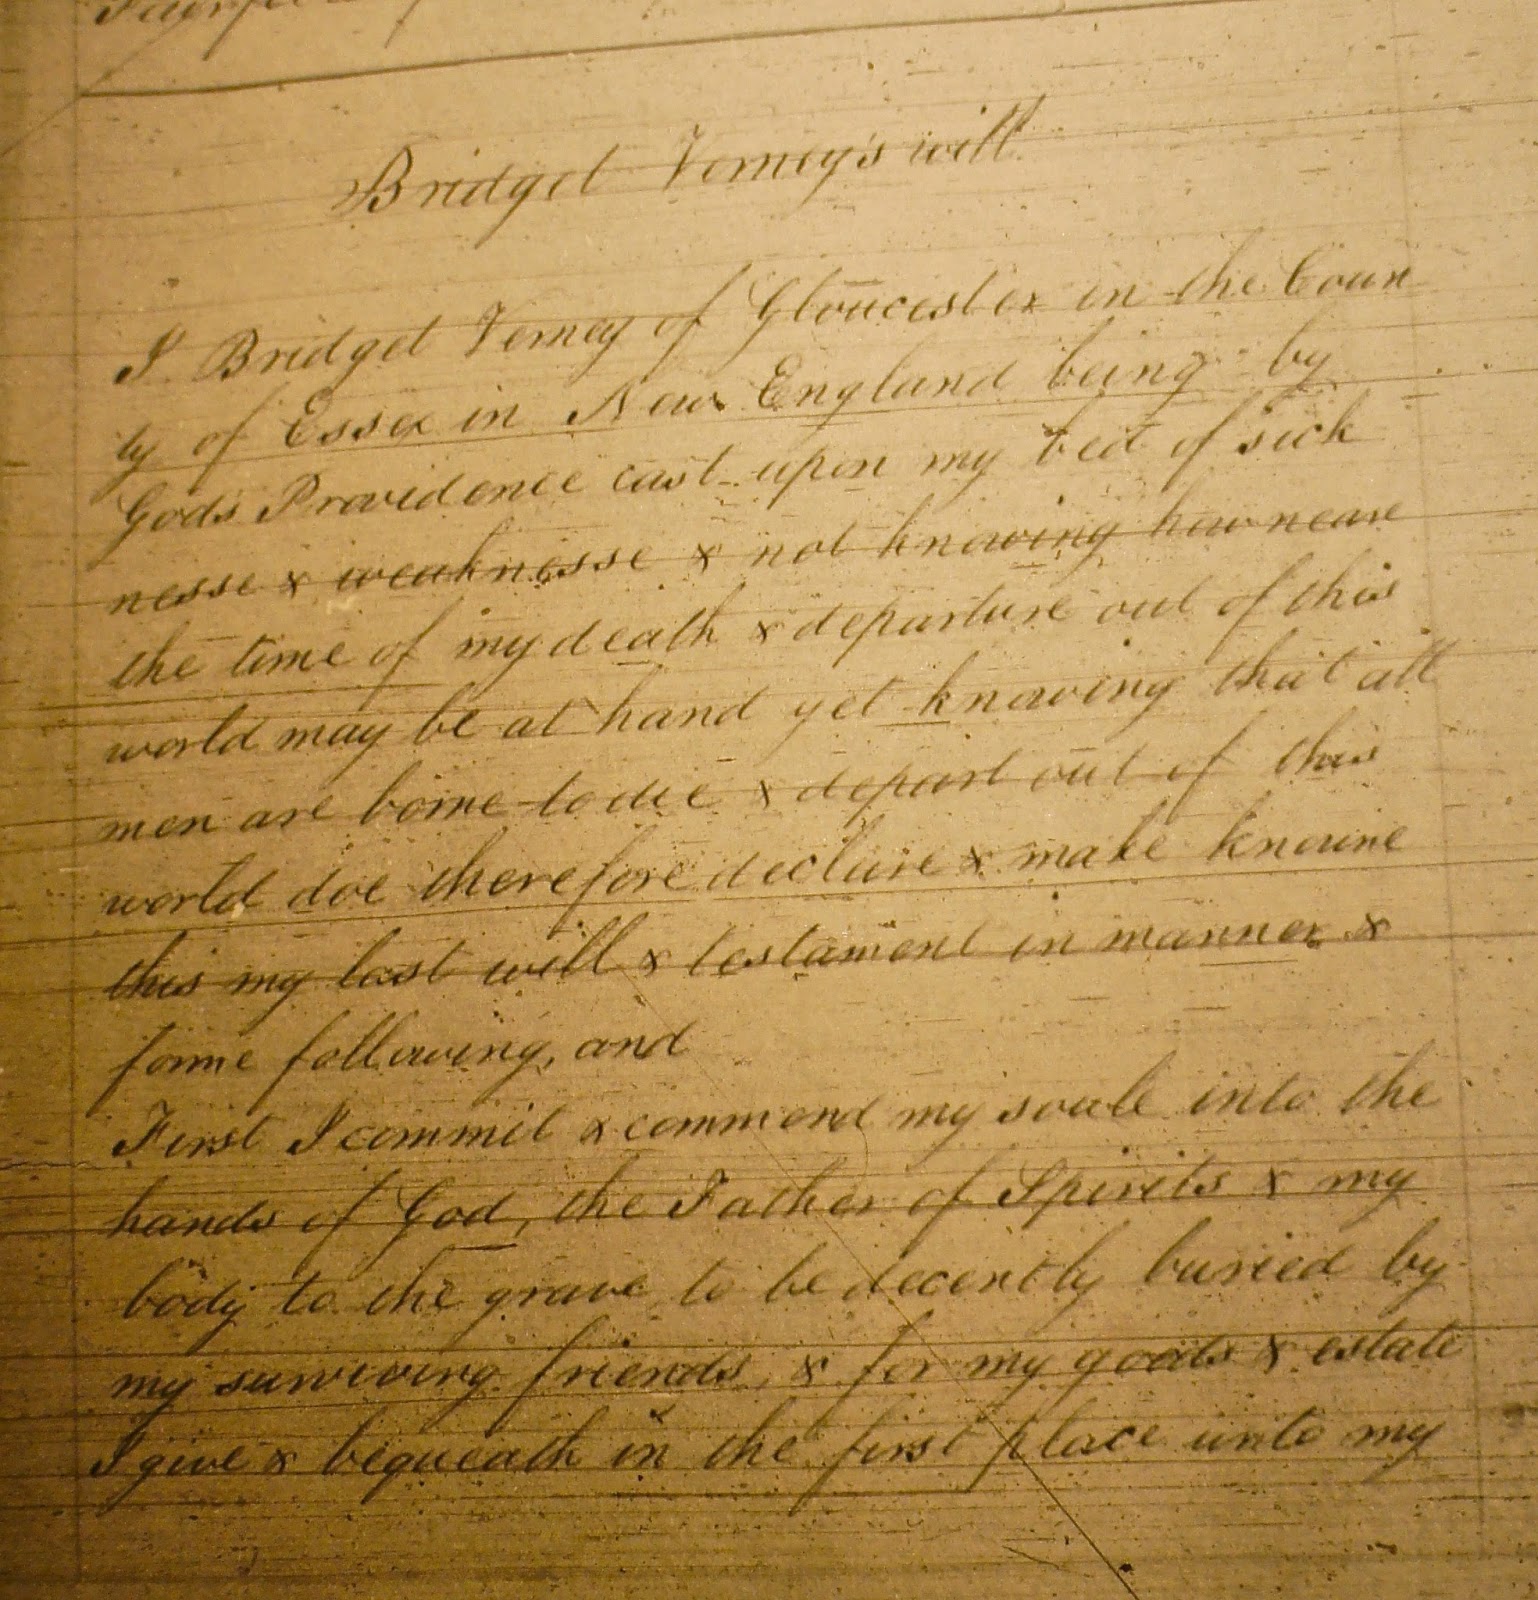 Bridget Verney's will.
I Bridget Verney of Gloucester in the Coun
ty of Essex in New England being by
Gods Providence cast upon my bed of sick
nesse & weaknesse & not knowing how neare
the time of my death & departure out of this
world may be at hand yet knowing that all
men are borne to die & depart out of this
world doe therefore declare & make knowne
this my last will & testament in manner &
forme following, and
First I commit & commend my soule into the
hands of God, the Father of Spirits & my
body to the grave to be decently buried by
my surviving friends, & for my goods & estate
I give & bequeath in the first place unto my